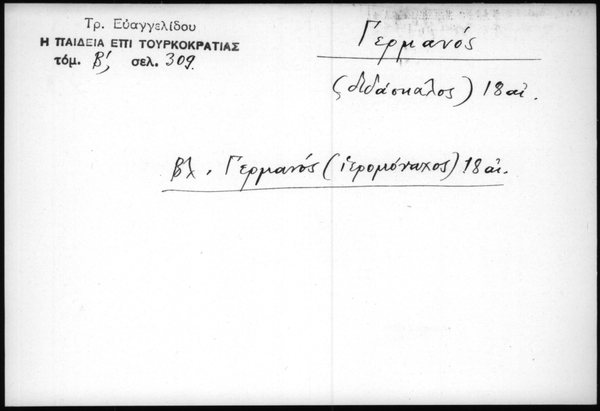 Τρ. Εὐαγγελίδου
Η ΠΑΙΔΕΙΑ ΕΠΙ ΤΟΥΡΚΟΚΡΑΤΙΑΣ
τόμ. Β΄, σελ. 309.
Γερμανός
(διδάσκαλος) 18 αἰ.
βλ. Γερμανός (ἱερομόναχος) 18 αἰ.